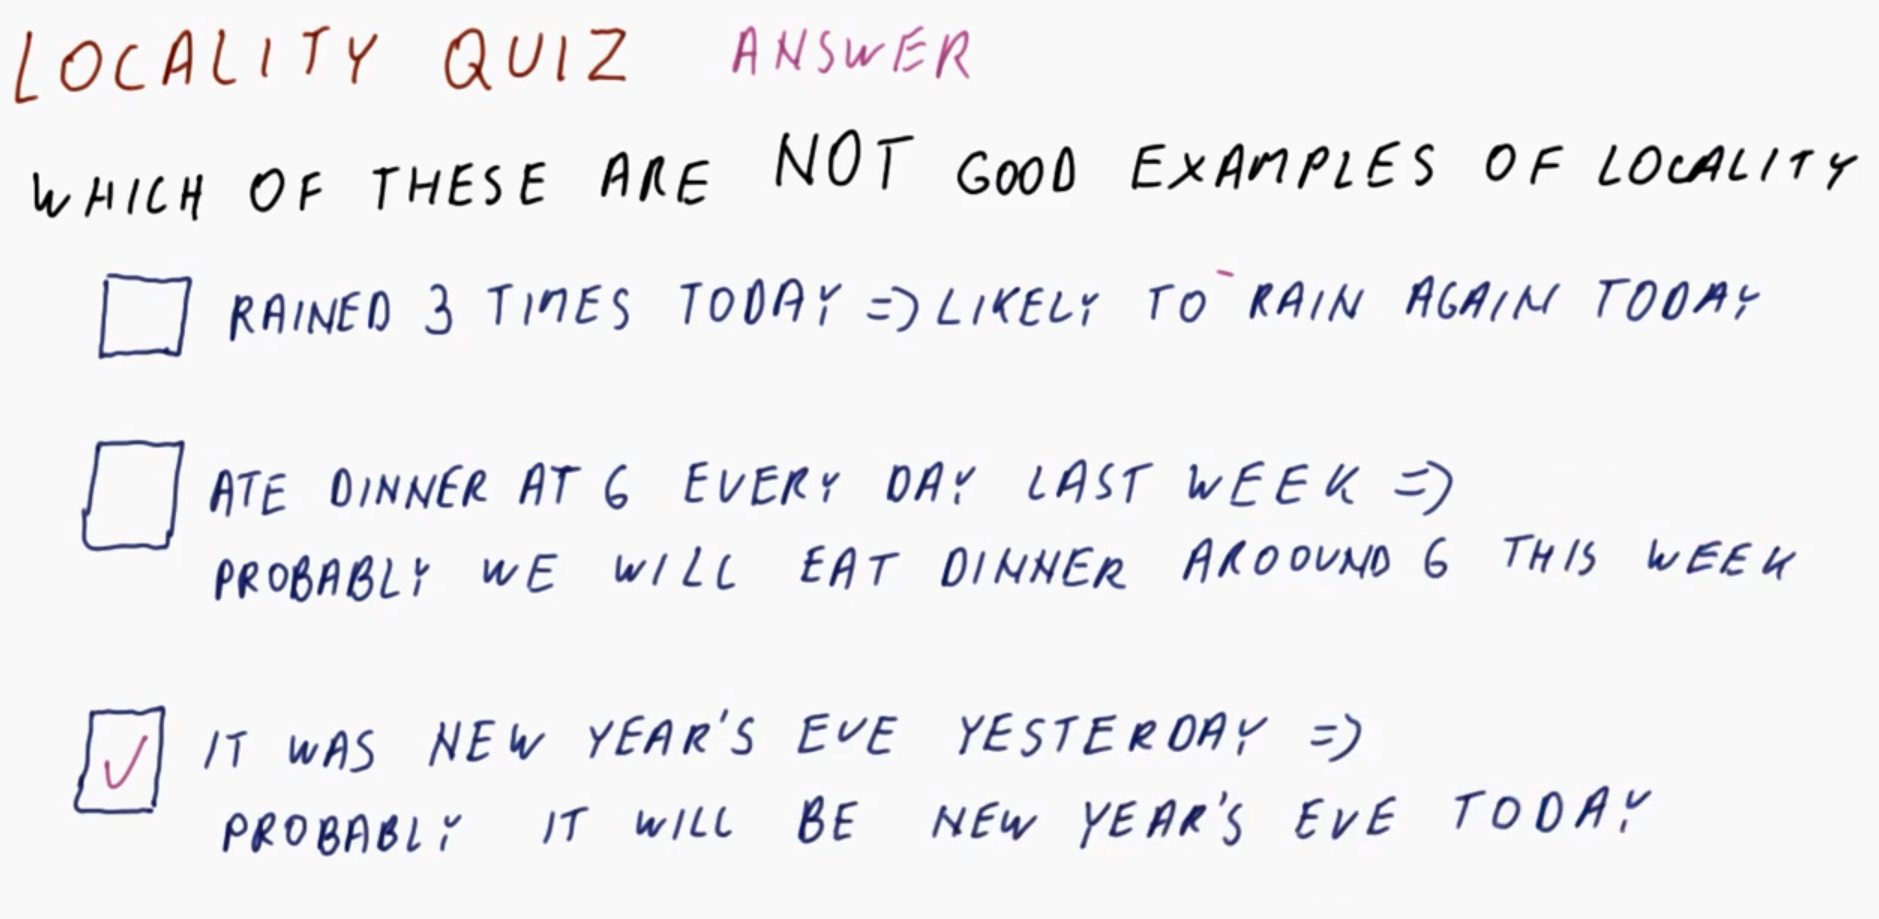 LOCALITY QUIZ ANSWER
WHICH OF THESE ARE NOT GOOD EXAMPLES OF LOCALITY
RAINED 3 TIMES TODAY => LIKELY TO RAIN AGAIN TODAY
ATE DINNER AT 6 EVERY DAY LAST WEEK =>
PROBABLY WE WILL EAT DINNER AROOUND 6 THIS WEEK
IT WAS NEW YEAR'S EVE YESTERDAY =>
PROBABLY IT WILL BE NEW YEAR'S EVE TODAY